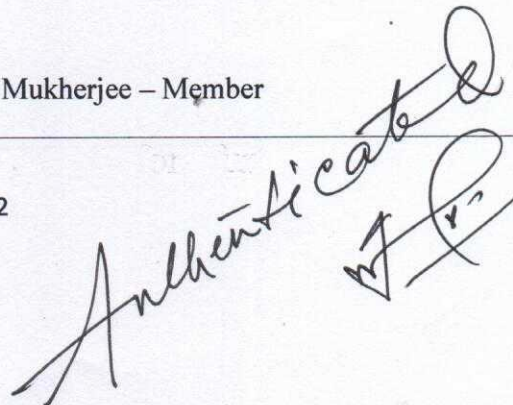 Mukherjee – Member
2
Authenticated